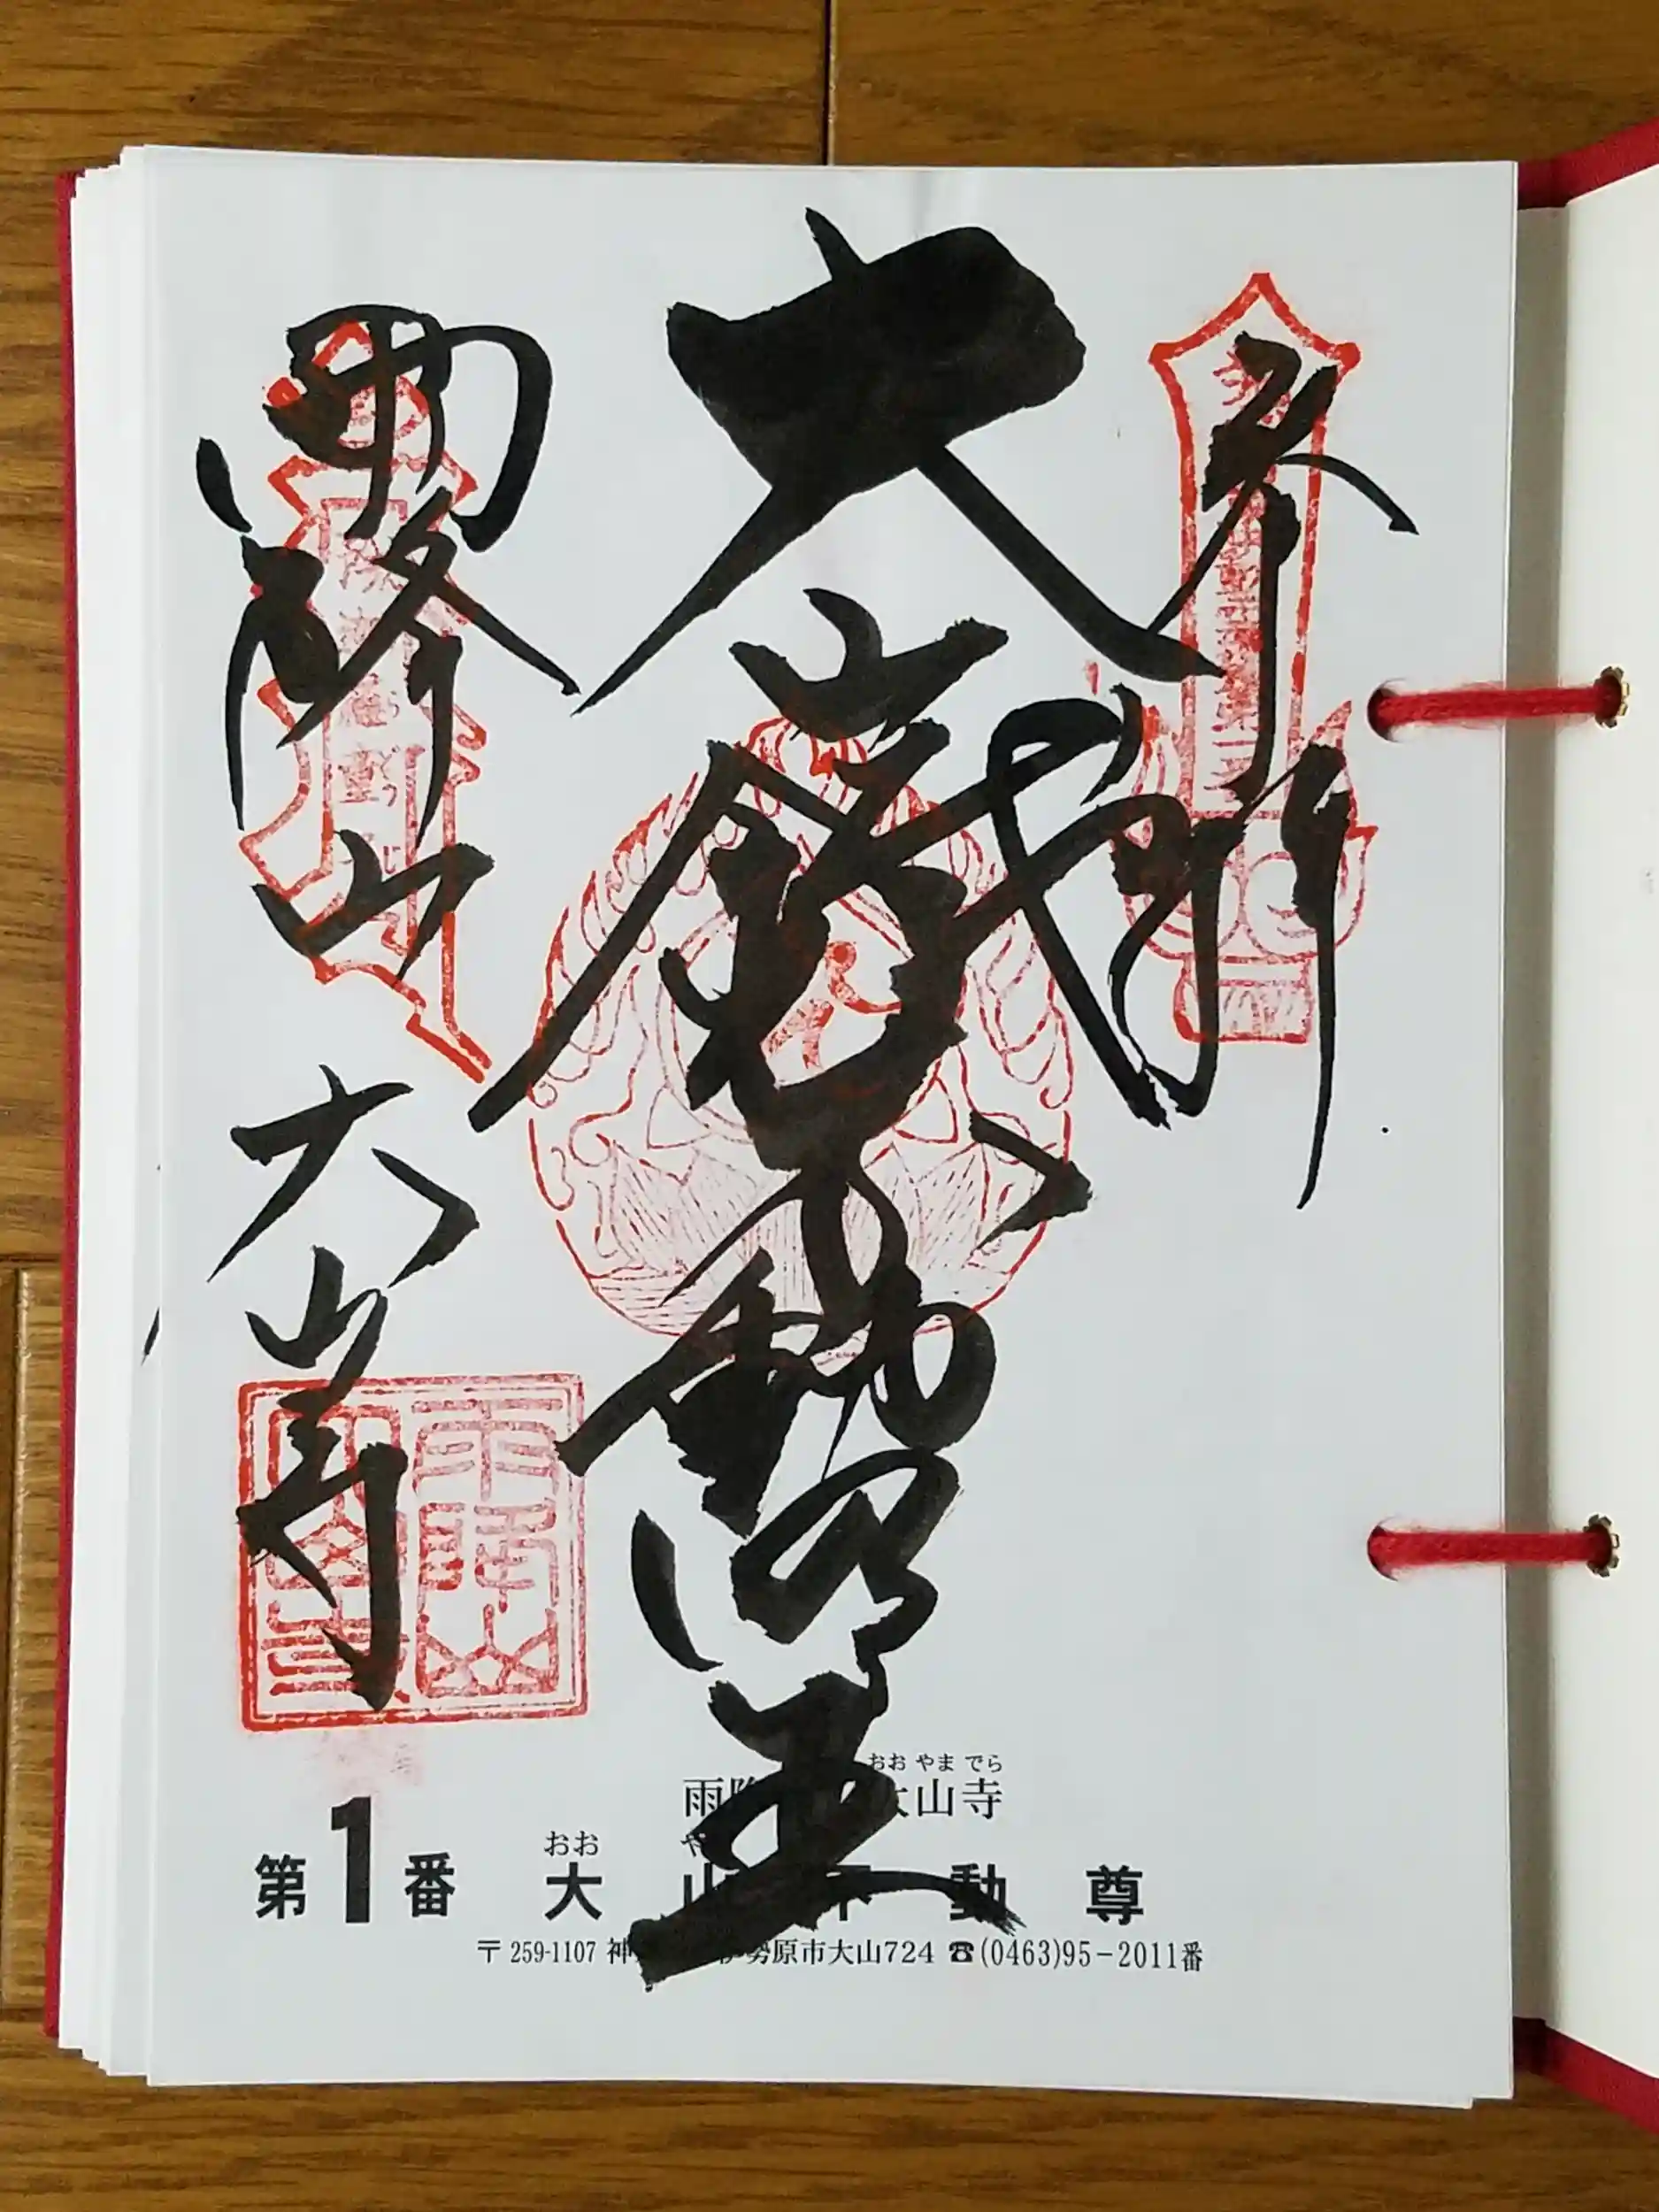 奉拝
大山鐵不動明王
雨降山
大山寺
雨降山
大山寺
おお やま でら
雨降 大山寺
おお や
第1番 大山不動尊
〒259-1107 神 勢原市大山724 ☎(0463)95−2011番